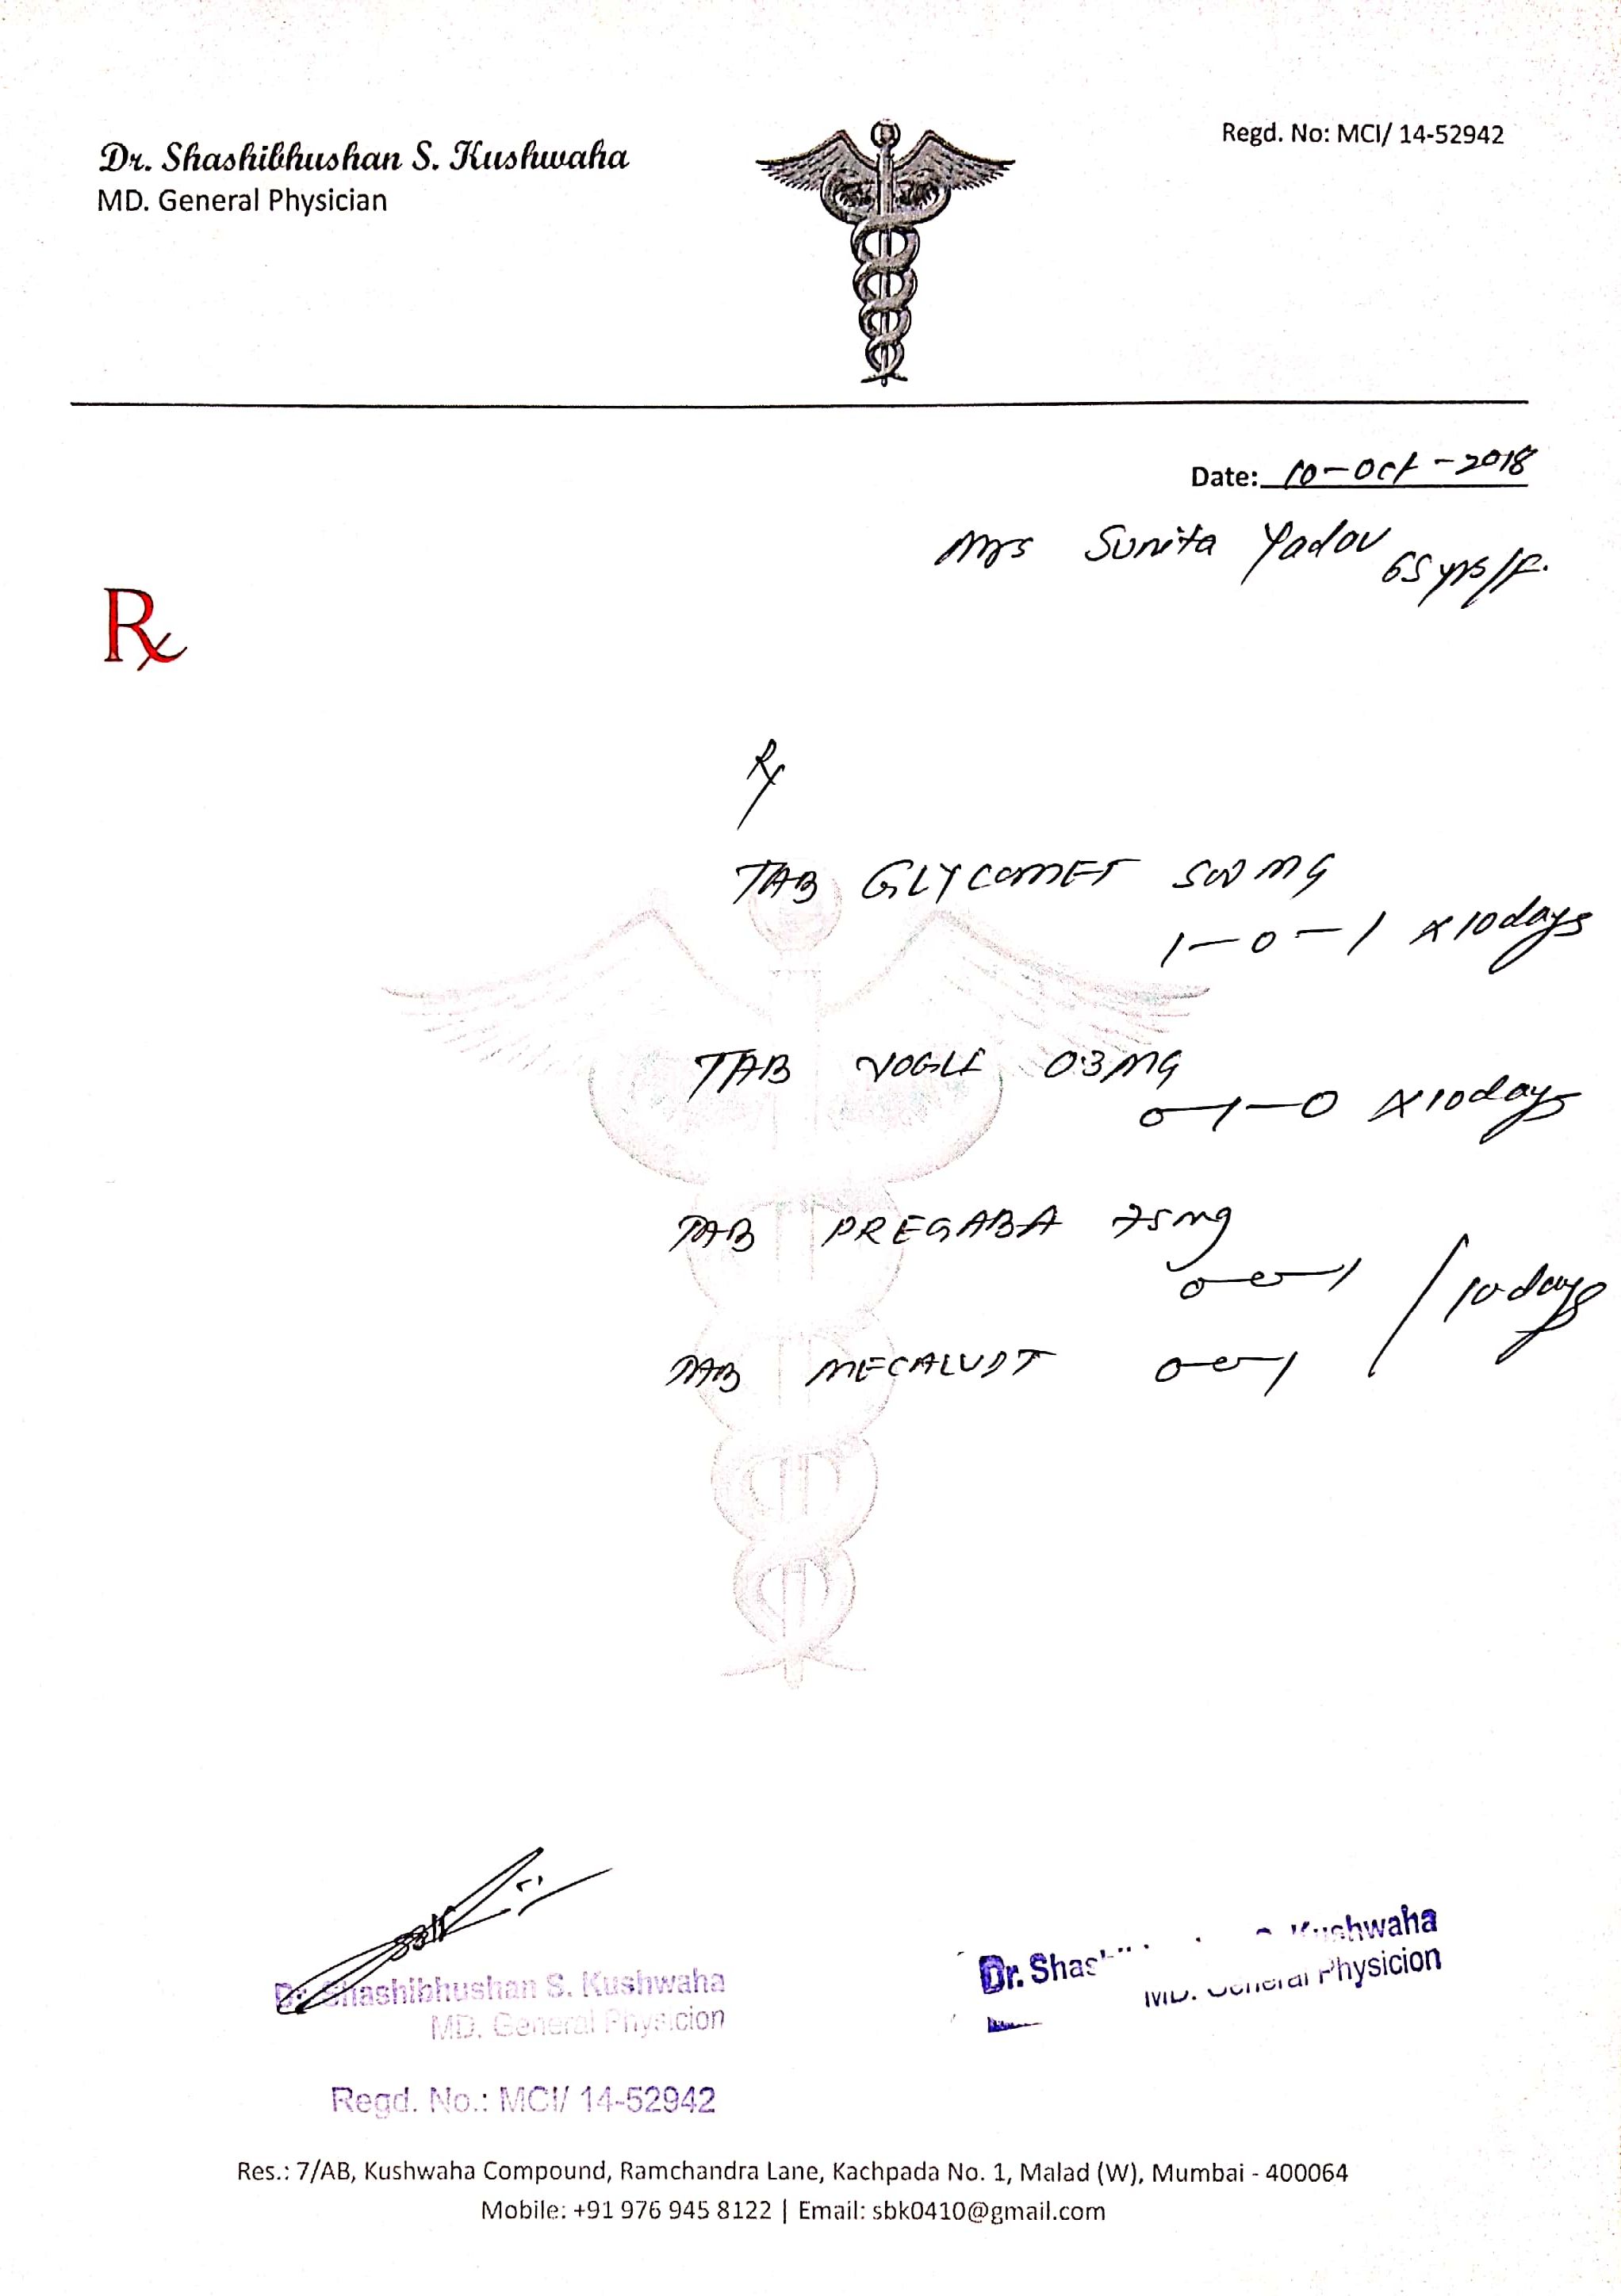 Dr. Shashibhushan S. Kushwaha
MD. General Physician
Regd. No: MCI/ 14-52942
Date: 10-Oct-2018
Mrs Sunita Yadav 65yrs/F.
Rx
Rx
TAB GLYCOMET 500 MG
1-0-1 x 10days
TAB VOGLI 0.3MG
0-1-0 x 10days
TAB PREGABA 75mg
0-0-1
/ 10days
TAB 0-0-1
Dr. Shashibhushan S. Kushwaha
MD. General Physicion
Regd. No.: MCI/ 14-52942
Dr. Shas Kushwaha
MD. General Physicion
Res.: 7/AB, Kushwaha Compound, Ramchandra Lane, Kachpada No. 1, Malad (W), Mumbai - 400064
Mobile: +91 976 945 8122 | Email: sbk0410@gmail.com